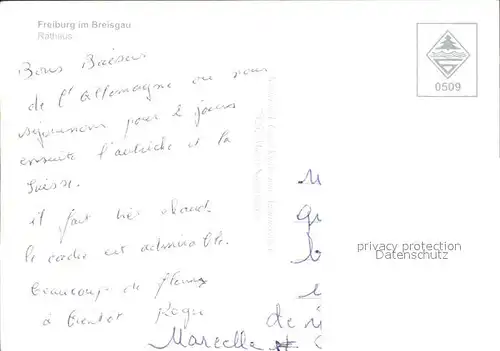 Freiburg im Breisgau
Rathaus
0509
Bons Baisers
de l'allemagne ou nous
séjournons pour 2 jours
ensuite l'autriche et la
Suisse.
il fait très chaud.
le cadre est admirable.
beaucoup de fleurs
à bientot Roger
Marcelle et
privacy protection
Datenschutz
de